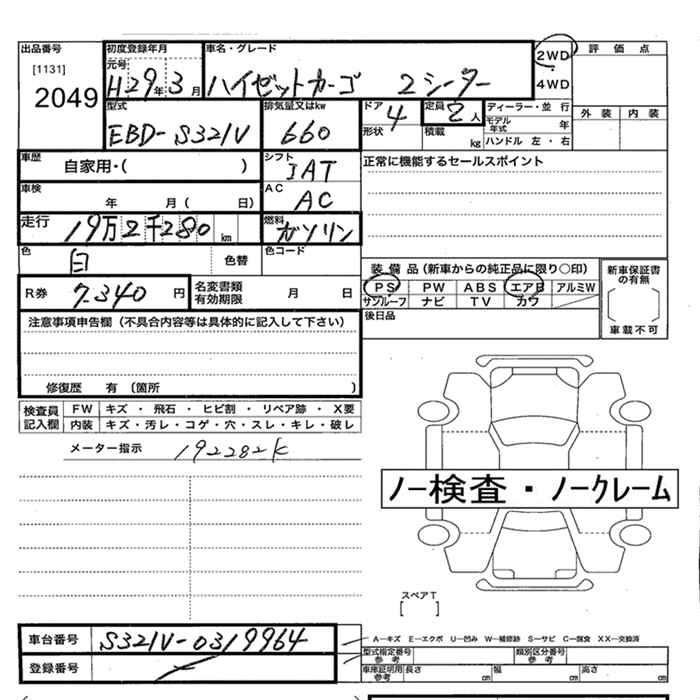 出品番号 初度登録年月 車名・グレード 2WD 評価点
[1131] 元号
2049 H29年3月 ハイゼットカーゴ 2シーター 4WD
型式 排気量又はkw ドア 4 定員 2人 ディーラー・並行 外装 内装
EBD-S321V 660 形状 積載 kg モデル年式 年
ハンドル 左・右
車歴 自家用・( ) シフト IAT 正常に機能するセールスポイント
車検 年 月( 日) AC AC
走行 19万2千280km 燃料 ガソリン
色 白 色替 色コード
装備品(新車からの純正品に限り○印) 新車保証書の有無
R券 7.340円 名変書類有効期限 月 日 PS PW ABS エアB アルミW
サンルーフ ナビ TV カワ
後日品 車載不可
注意事項申告欄(不具合内容等は具体的に記入して下さい)
修復歴 有 (箇所 )
検査員記入欄 FW キズ・飛石・ヒビ割・リペア跡・X要
内装 キズ・汚レ・コゲ・穴・スレ・キレ・破レ
メーター指示 192282K
ノー検査・ノークレーム
スペアT
[ ]
車台番号 S321V-0319964 A―キズ E―エクボ U―凹み W―補修跡 S―サビ C―腐食 XX―交換済
登録番号 型式指定番号 参考 類別区分番号 参考
車庫証明用 参考 長さ cm 幅 cm 高さ cm